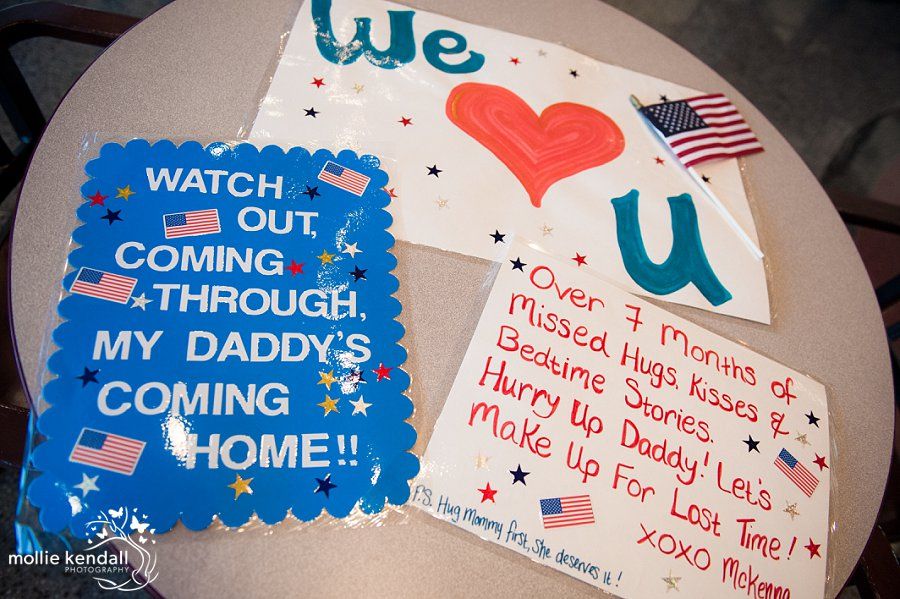 We
U
WATCH
OUT,
COMING
THROUGH,
MY DADDY'S
COMING
HOME!!
Over 7 Months of
Missed Hugs, Kisses &
Bedtime Stories.
Hurry Up Daddy! Let's
Make Up For Lost Time!
XOXO McKenna
P.S. Hug Mommy first, She deserves it!
mollie kendall
PHOTOGRAPHY